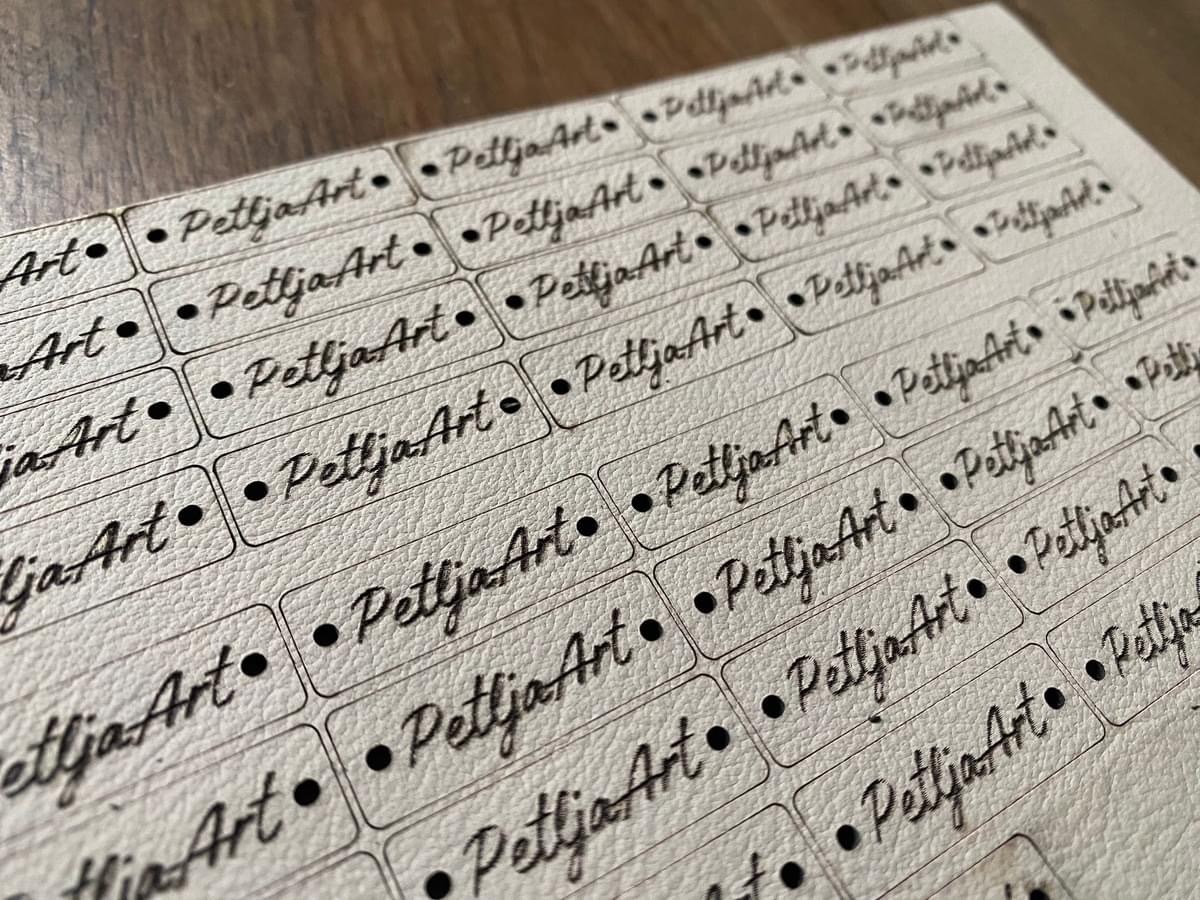 Art PetljaArt PetljaArt PetljaArt PetljaArt
aArt PetljaArt PetljaArt PetljaArt PetljaArt
jaArt PetljaArt PetljaArt PetljaArt PetljaArt
ljaArt PetljaArt PetljaArt PetljaArt PetljaArt
etljaArt PetljaArt PetljaArt PetljaArt PetljaArt
tljaArt PetljaArt PetljaArt PetljaArt Petlj
PetljaArt PetljaArt PetljaArt
Art PetljaArt Petlja